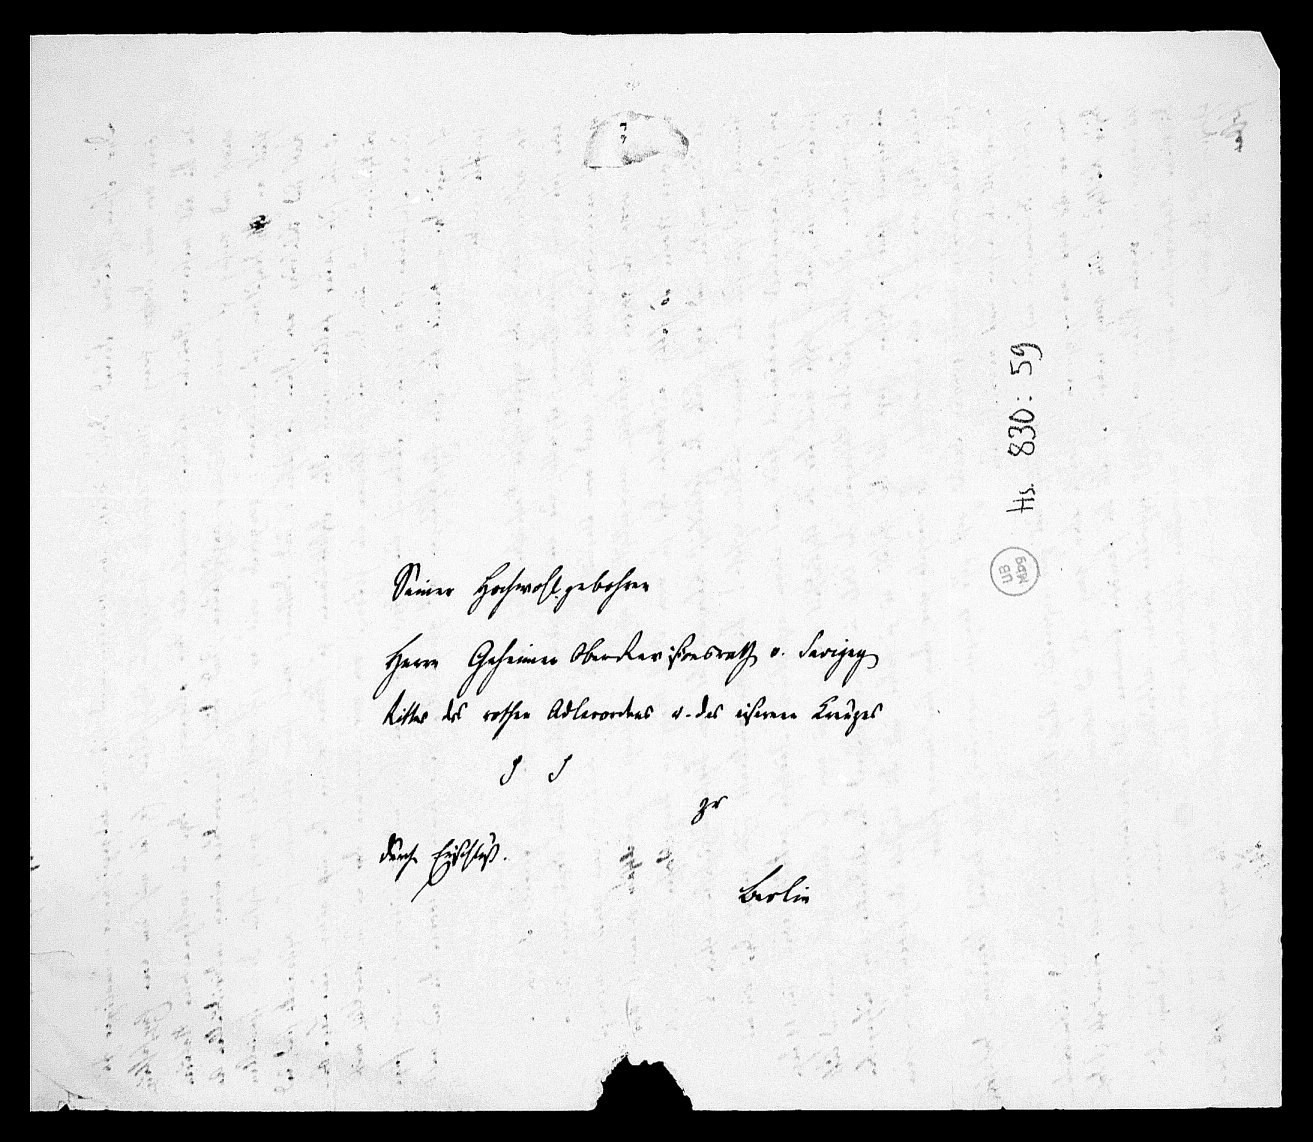 Seiner Hochwohlgebohren
Herrn Geheimen OberRevisionsrath v. Savigny
Ritter des rothen Adlerordens u. des eisernen Kreuzes
zu
durch Einschluß.
Berlin
Hs. 830: 59
UB
Mbg